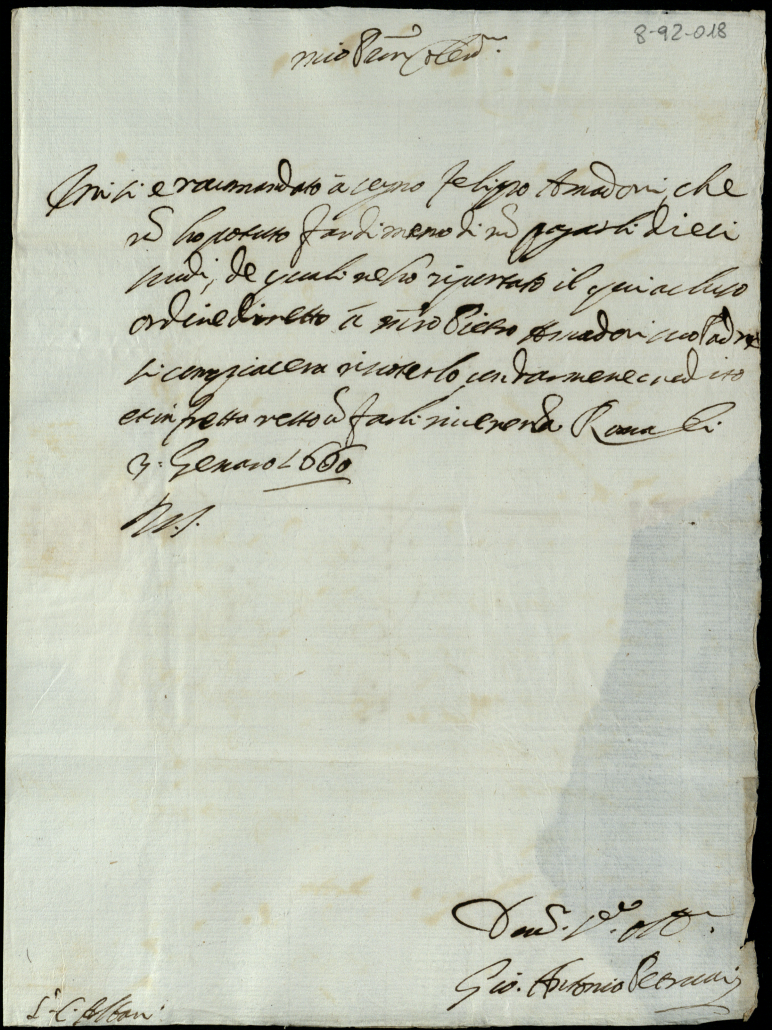 8-92-018
mio Pron Colendmo
Mi si e racomandato à segno Felippo Amadori, che
nõ ho potuto far di meno di nõ pagarli dieci
scudi, de quali ne ho riportato il qui acluso
ordine diretto à mro Pietro Amadori suo Padre
si compiacera riscoterlo con darmene credito
et in fretta resto cõ farli riverenza Roma li
3: Genaro 1660
Gio. Antonio Petrucci